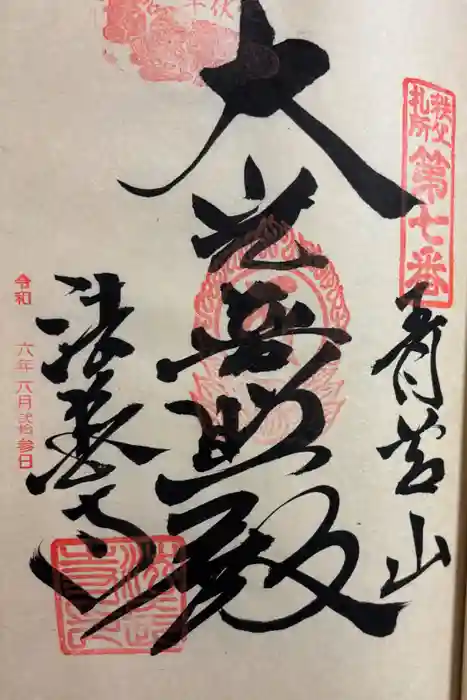 秩父
札所
第七番
青苔山
大光普照殿
法長寺
令和 六年 八月 弐拾参日